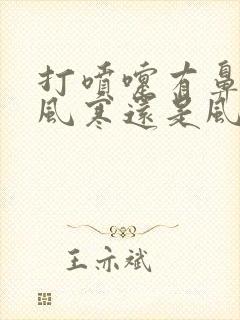 打噴嚏有鼻
風寒還是風
王亦斌